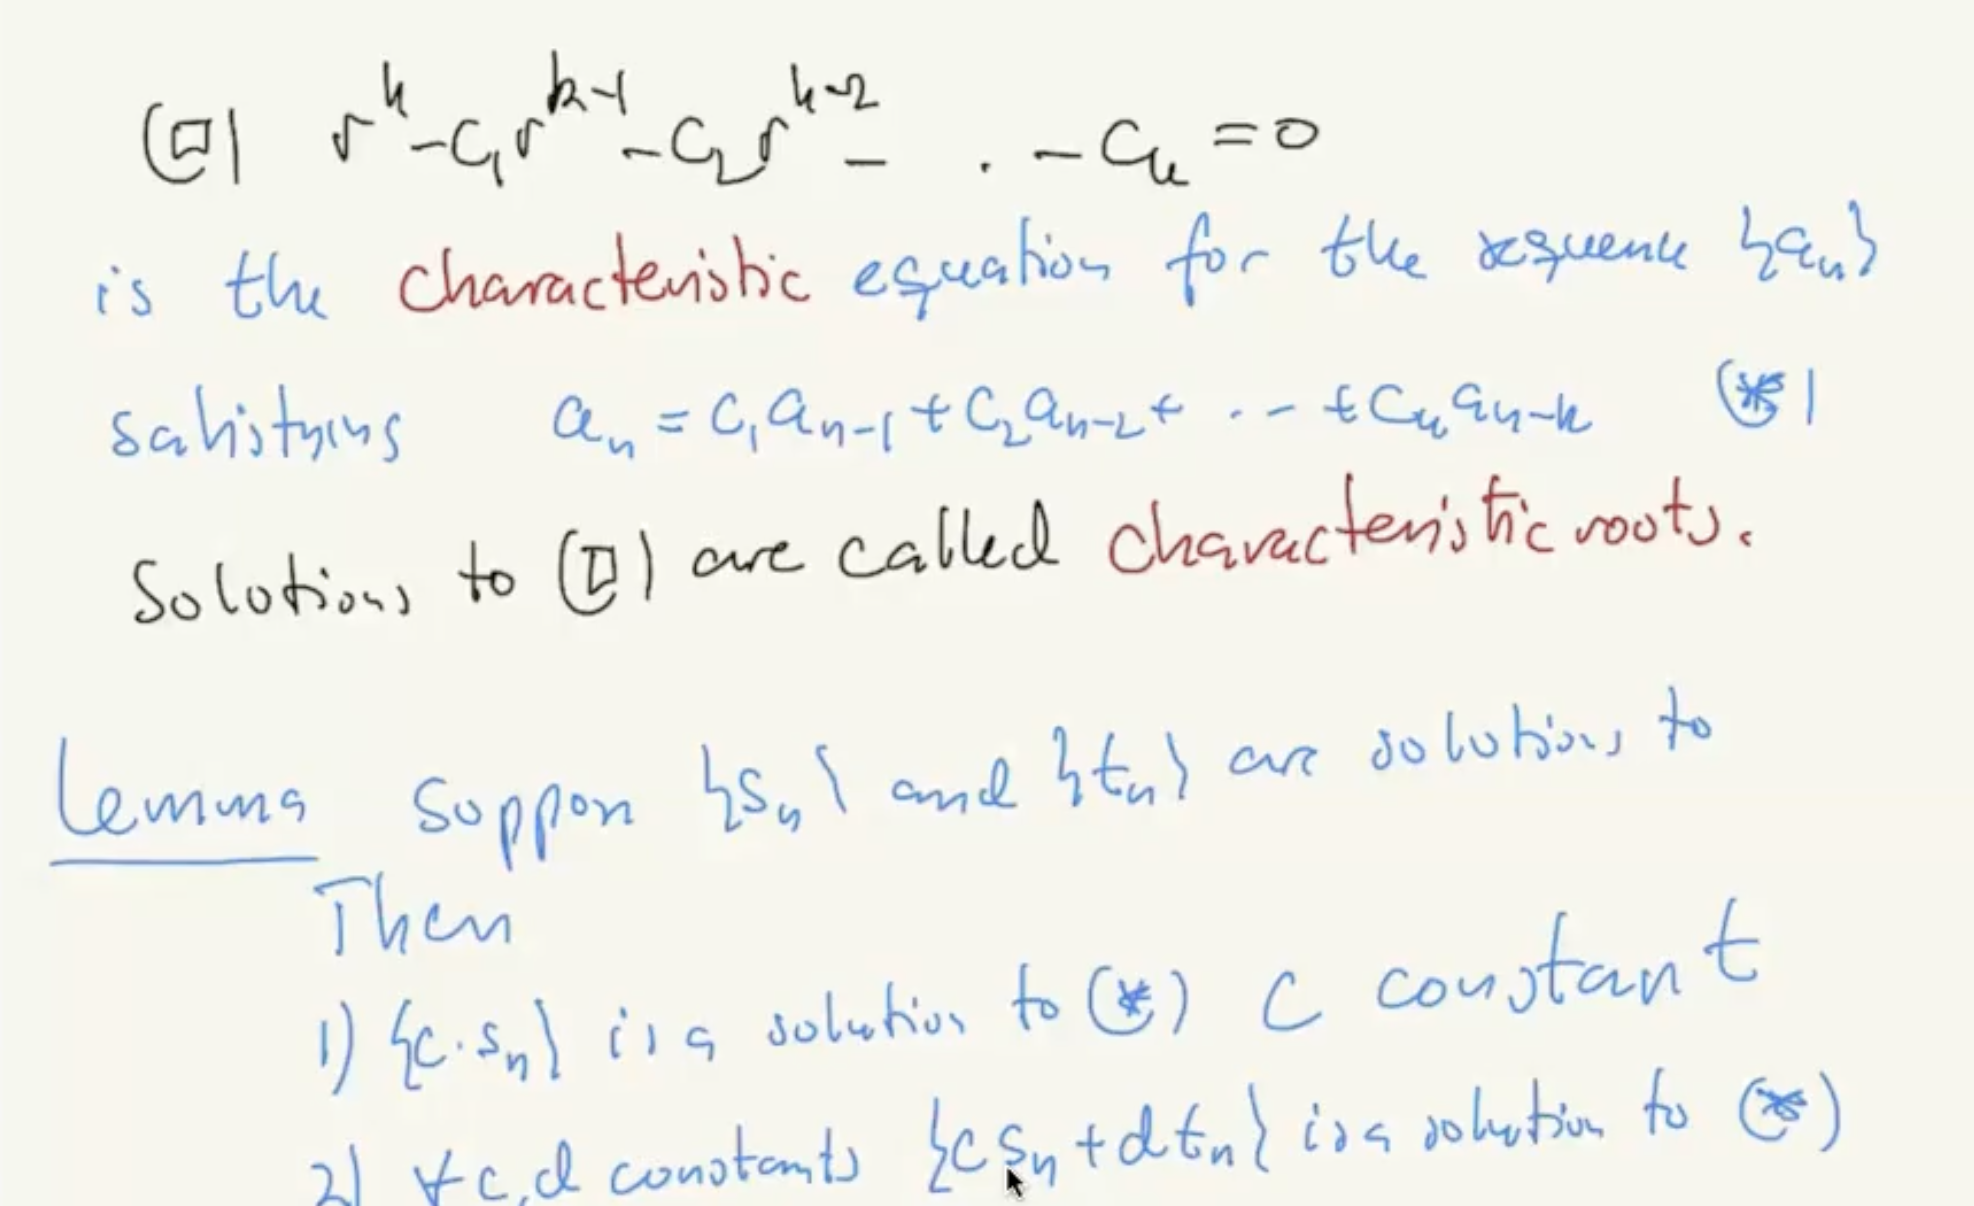 (□) r^k - c₁r^{k-1} - c₂r^{k-2} - . - c_k = 0
is the characteristic equation for the sequence {aₙ}
satisfying aₙ = c₁aₙ₋₁ + c₂aₙ₋₂ + ... + c_k a_{n-k} (*)
Solutions to (□) are called characteristic roots.
Lemma Suppose {sₙ} and {tₙ} are solutions to
Then
1) {c·sₙ} is a solution to (*) C constant
2) ∀ c,d constants {c sₙ + d tₙ} is a solution to (*)